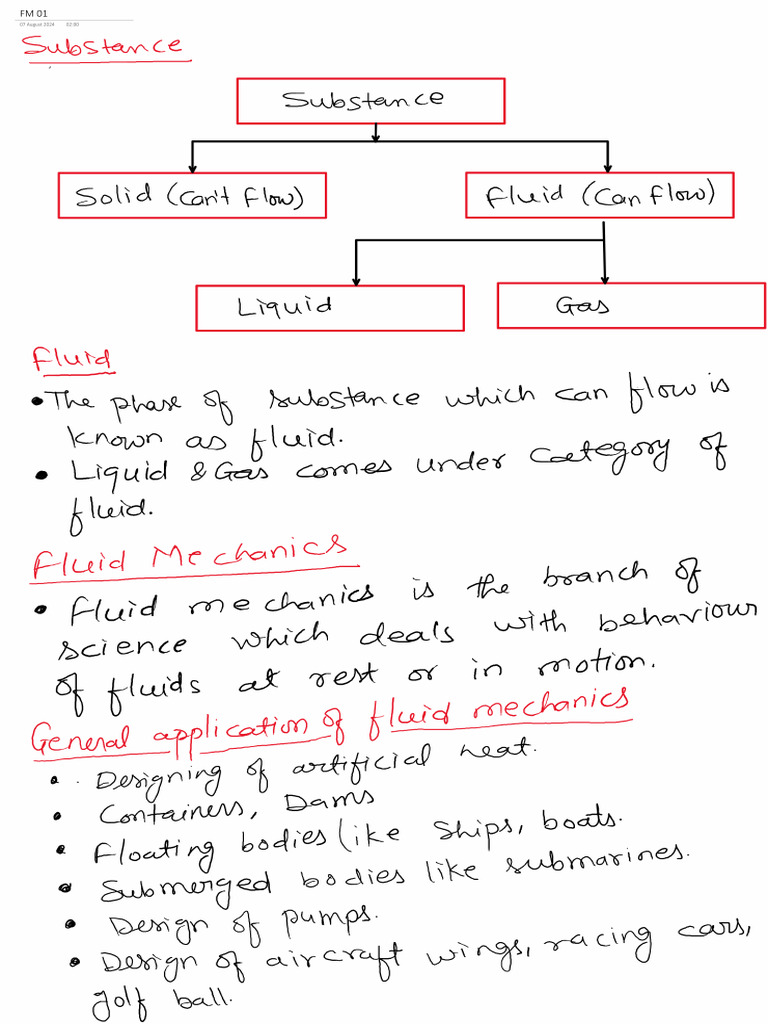 FM 01
07 August 2024 02:00
Substance
Substance
Solid (Can't Flow)
Fluid (Can flow)
Liquid
Gas
Fluid
• The phase of substance which can flow is
known as fluid.
• Liquid & Gas comes under category of
fluid.
Fluid Mechanics
• Fluid mechanics is the branch of
science which deals with behaviour
of fluids at rest or in motion.
General application of fluid mechanics
• Designing of artificial heat.
• Containers, Dams
• Floating bodies like Ships, boats.
• Submerged bodies like submarines.
• Design of pumps.
• Design of aircraft wings, racing cars,
golf ball.